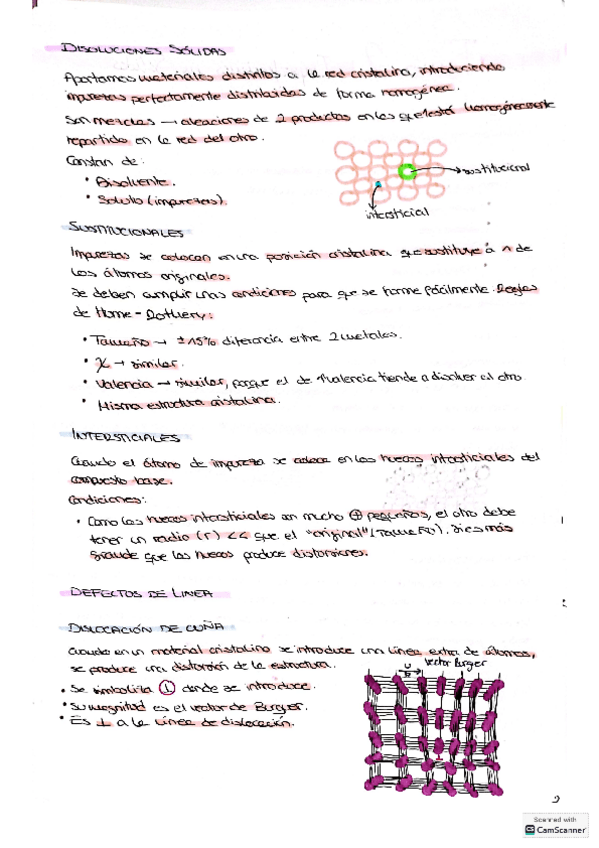 DISOLUCIONES SÓLIDAS
Aportamos materiales distintos a la red cristalina, introduciendo
impurezas perfectamente distribuidas de forma homogénea.
Son mezclas → aleaciones de 2 productos en las que 1 está homogéneamente
repartido en la red del otro.
Constan de:
• Disolvente.
• Soluto (impurezas).
sustitucional
intersticial
SUSTITUCIONALES
Impurezas se colocan en una posición cristalina que sustituye a 1 de
los átomos originales.
Se deben cumplir unas condiciones para que se forme fácilmente. Reglas
de Home-Rothery:
• Tamaño → ±15% diferencia entre 2 metales.
• X → similar.
• Valencia → similar, porque el de ↑valencia tiende a disolver el otro
• Misma estructura cristalina.
INTERSTICIALES
Cuando el átomo de impureza se coloca en los huecos intersticiales del
compuesto base.
Condiciones:
• Como los huecos intersticiales son mucho ⊕ pequeños, el otro debe
tener un radio (r) << que el "original" (tamaño). Si es más
grande que los huecos produce distorsiones.
DEFECTOS DE LINEA
DISLOCACIÓN DE CUÑA
Cuando en un material cristalino se introduce una línea extra de átomos,
se produce una distorsión de la estructura.
vector Burger
• Se simboliza ⊥ donde se introduce.
• Su magnitud es el vector de Burger.
• Es ⊥ a la línea de dislocación.
2
Scanned with
CS CamScanner